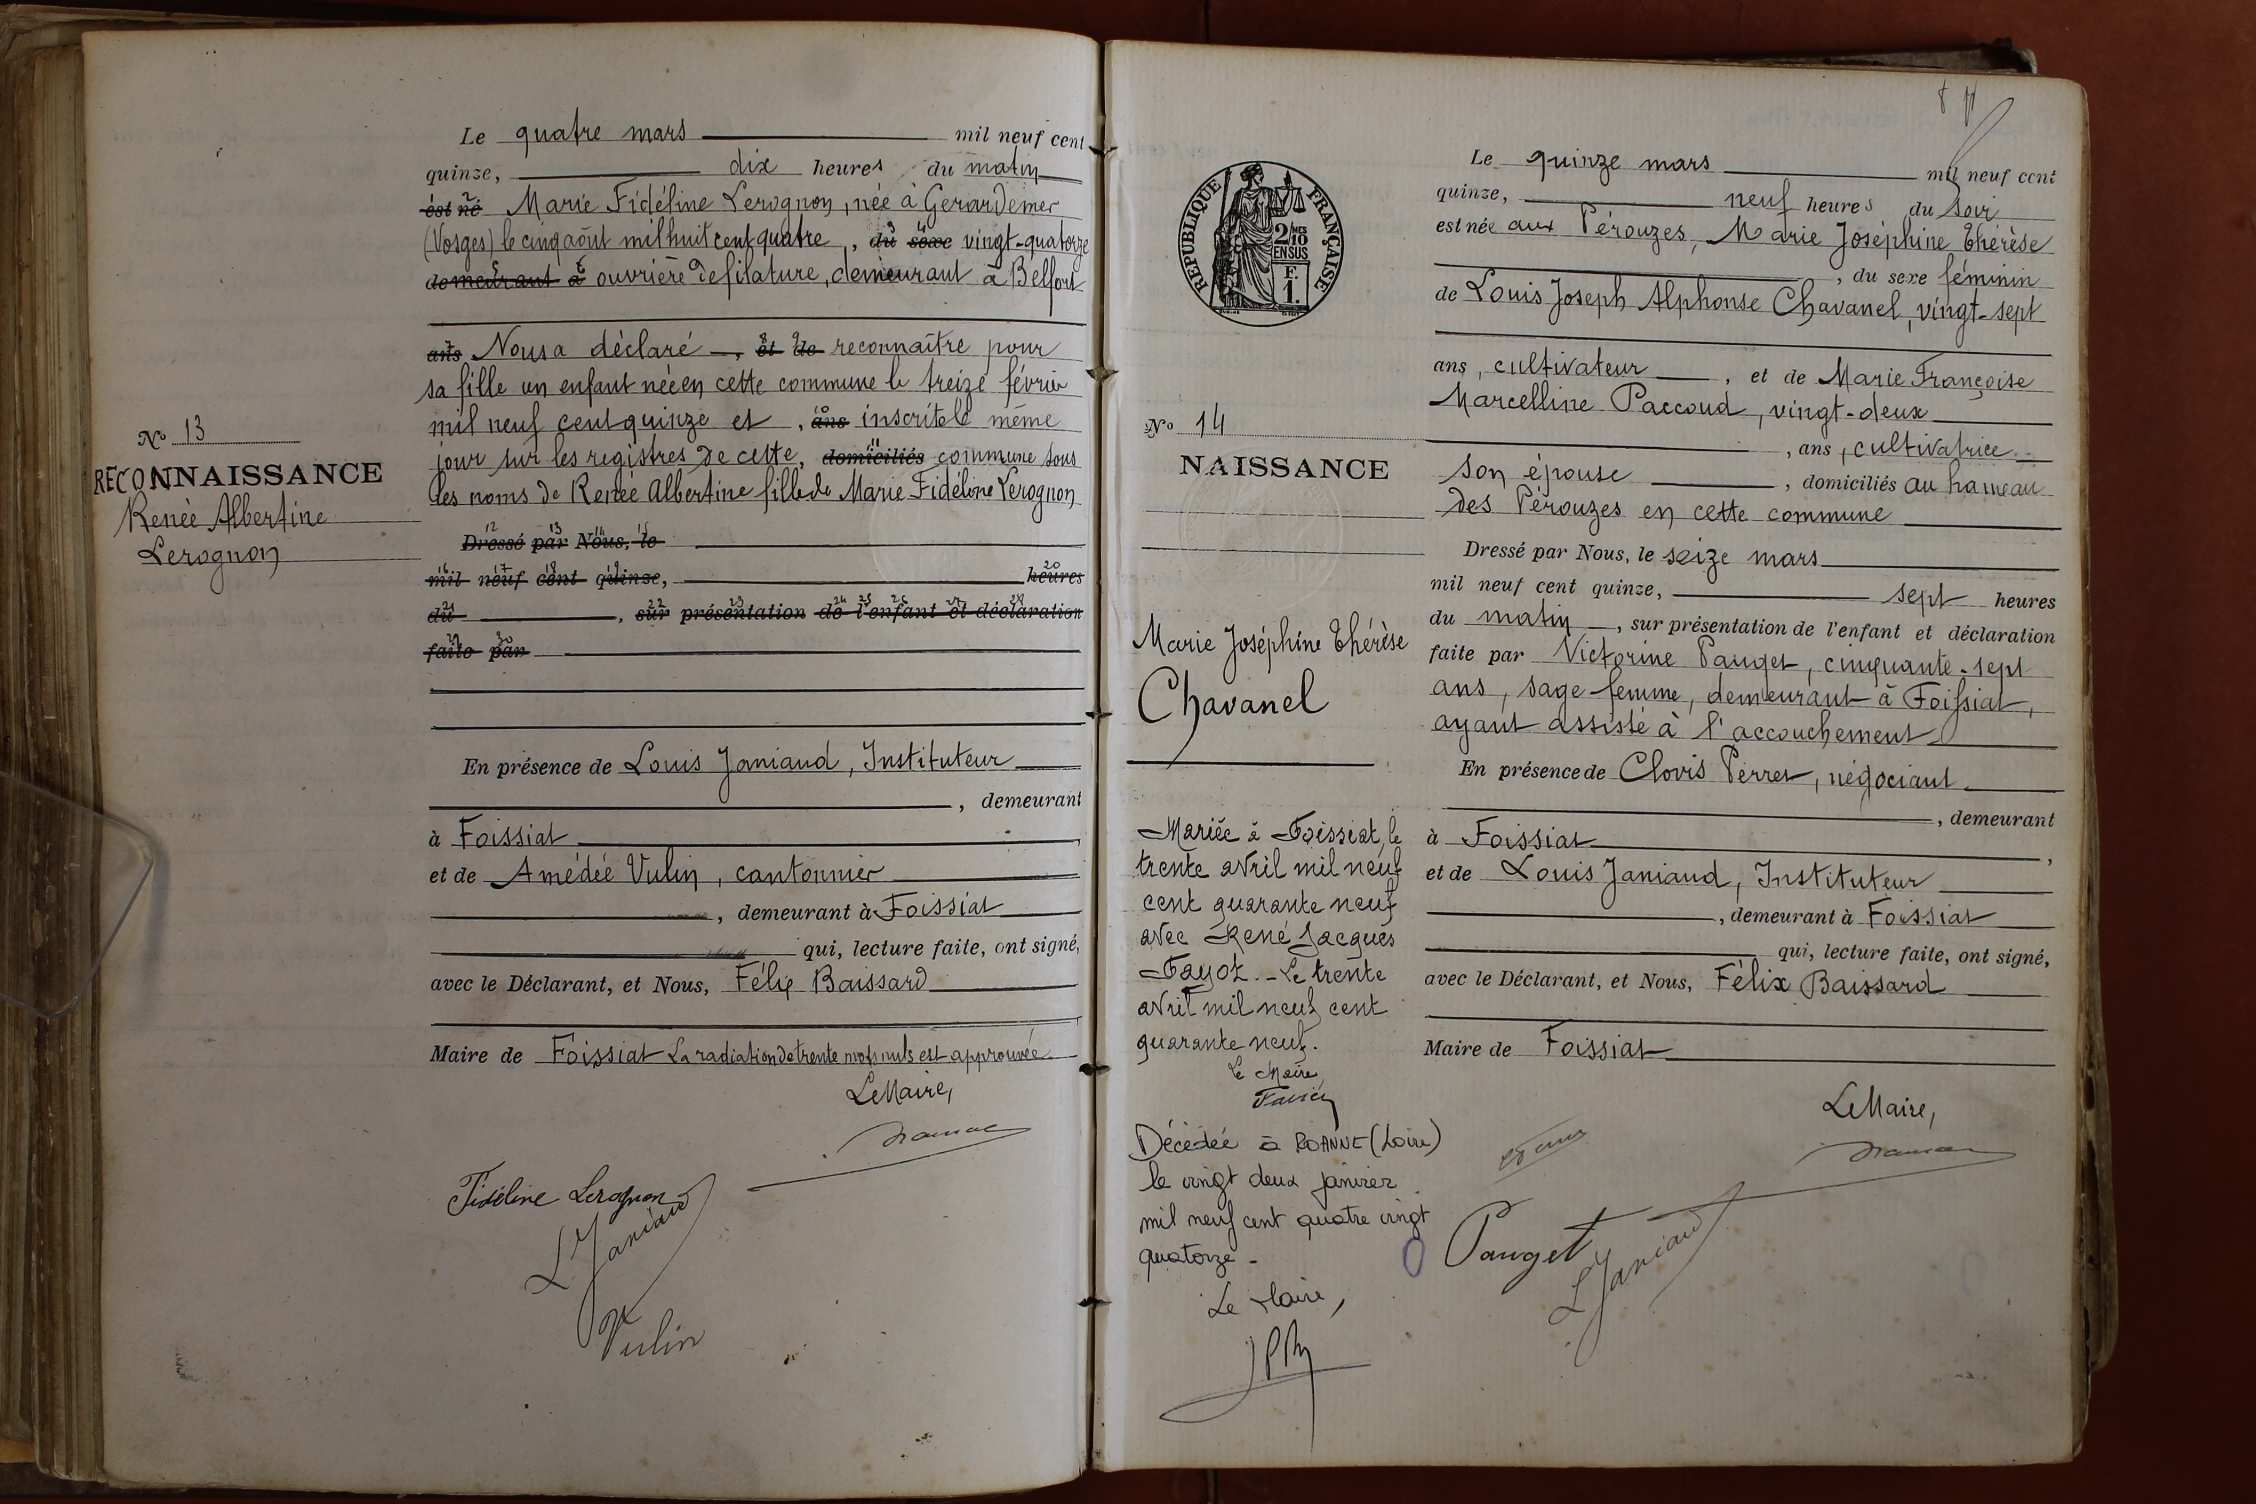 Le quatre mars mil neuf cent
quinze, dix heures du matin
est né Marie Fidéline Lerognon, née à Gerardemer
(Vosges) le cinq août mil huit cent quatre, du sexe vingt-quatorze
demeurant à ouvrière de filature, demeurant à Belfort
ans Nous a déclaré, et de reconnaître pour
sa fille un enfant née en cette commune le treize février
mil neuf cent quinze et, ans inscrite le même
jour sur les registres de cette, domiciliés commune sous
les noms de Renée Albertine fille de Marie Fidéline Lerognon
Dressé par Nous, le
mil neuf cent quinze, heures
du , sur présentation de l'enfant et déclaration
faite par
No 13
RECONNAISSANCE
Renée Albertine
Lerognon
En présence de Louis Janiaud, Instituteur
, demeurant
à Foissiat
et de Amédée Vulin, cantonnier
, demeurant à Foissiat
qui, lecture faite, ont signé,
avec le Déclarant, et Nous, Félix Baissard
Maire de Foissiat La radiation de trente mots nuls est approuvée
Le Maire,
Fidéline Lerognon
L Janiaud
Vulin
RÉPUBLIQUE FRANÇAISE
2/10 MES
EN SUS
F.
1.
No 14
NAISSANCE
Marie Joséphine Thérèse
Chavanel
Mariée à Foissiat, le
trente avril mil neuf
cent quarante neuf
avec René Jacques
Fayot. - Le trente
avril mil neuf cent
quarante neuf.
Le Maire,
Décédée à ROANNE (Loire)
le vingt deux janvier
mil neuf cent quatre vingt
quatorze -
Le Maire,
Le quinze mars mil neuf cent
quinze, neuf heures du soir
est née aux Pérouzes, Marie Joséphine Thérèse
, du sexe féminin
de Louis Joseph Alphonse Chavanel, vingt-sept
ans, cultivateur , et de Marie Françoise
Marcelline Paccoud, vingt-deux
, ans, cultivatrice
son épouse , domiciliés au hameau
des Pérouzes en cette commune
Dressé par Nous, le seize mars
mil neuf cent quinze, sept heures
du matin , sur présentation de l'enfant et déclaration
faite par Victorine Pauget, cinquante-sept
ans, sage-femme, demeurant à Foissiat,
ayant assisté à l'accouchement
En présence de Clovis Perret, négociant
, demeurant
à Foissiat ,
et de Louis Janiaud, Instituteur
, demeurant à Foissiat
qui, lecture faite, ont signé,
avec le Déclarant, et Nous, Félix Baissard
Maire de Foissiat
Le Maire,
Pauget
L Janiaud